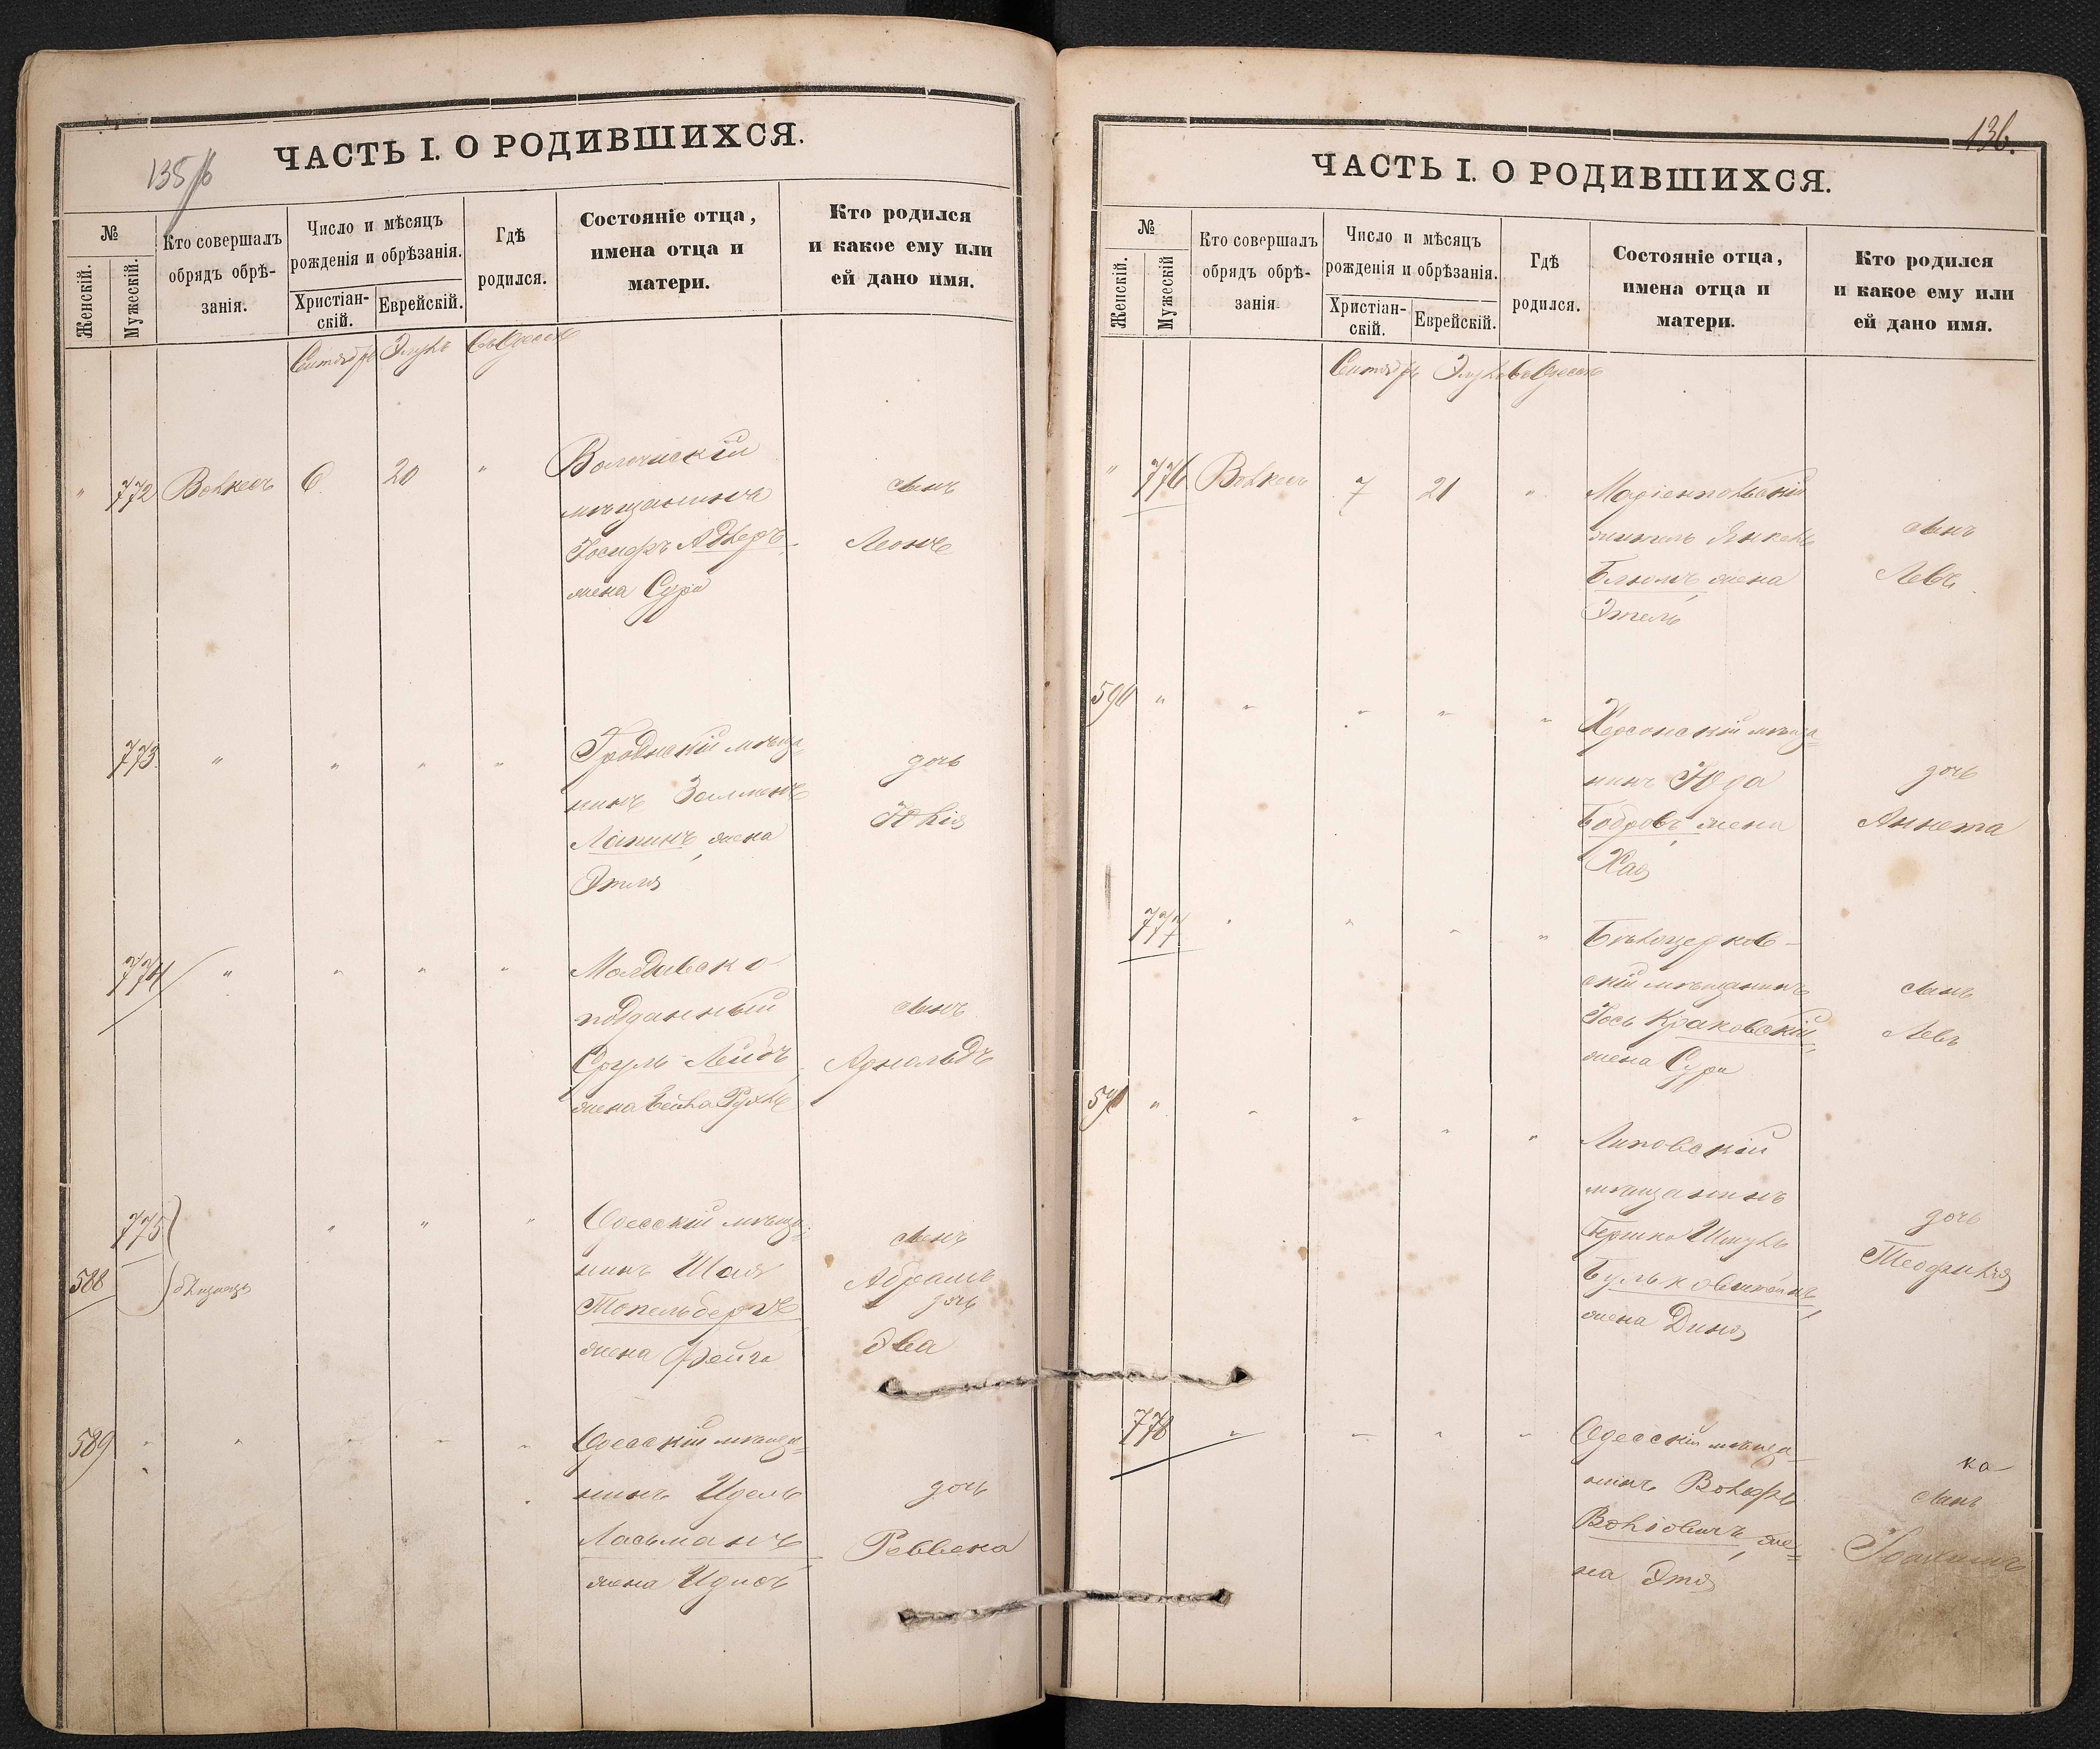 135/б
ЧАСТЬ I. О РОДИВШИХСЯ.
№
Женскій.
Мужескій.
Кто совершалъ
обрядъ обрѣ-
занія.
Число и мѣсяцъ
рожденія и обрѣзанія.
Христіан-
скій.
Еврейскій.
Гдѣ
родился.
Состояніе отца,
имена отца и
матери.
Кто родился
и какое ему или
ей дано имя.
Сентябрь Элулъ Въ Одессѣ
" 772 6 20 "
мѣщанинъ
Іосифъ Адлеръ
жена Сура
сынъ
Леонъ
773 " " " "
Гродскій мѣща-
нинъ Залменъ
Лапинъ, жена
Этля
дочь
Юлія
774 " " " "
Молдавско-
подданный
Сруль Лейбъ,
жена Бейла Рухль
сынъ
Арнольдъ
775
588 близнецы
" " "
Одесскій мѣща-
нинъ Шая
Топельбергъ
жена Фейга
сынъ
Абрамъ
дочь
Эва
589 " " " " "
Одесскій мѣща-
нинъ Идель
Ласьманъ
жена
дочь
Реввека
136.
ЧАСТЬ I. О РОДИВШИХСЯ.
№
Женскій.
Мужескій
Кто совершалъ
обрядъ обрѣ-
занія
Число и мѣсяцъ
рожденія и обрѣзанія.
Христіан-
скій.
Еврейскій.
Гдѣ
родился.
Состояніе отца,
имена отца и
матери.
Кто родился
и какое ему или
ей дано имя.
Сентябрь Элулъ Въ Одессѣ
" 776 7 21 "
Маріенпольскій
житель Янкель
Блюмъ, жена
Этель
сынъ
Левъ
590 " " " " "
Херсонскій мѣща-
нинъ Юда
Бобровъ, жена
Хая
дочь
Аннета
777 " " " "
Бѣлоцерков-
скій мѣщанинъ
Іось Краковскій,
жена Сура
сынъ
Левъ
591 " " " " "
Липовскій
мѣщанинъ
Гершко Шмуль
Бульковштейнъ,
жена Диня
дочь
Теофилія
778 " " " "
Одесскій мѣща-
нинъ Вольфъ
Воліовичъ, же-
на Этя
ка
сынъ
Іоахимъ